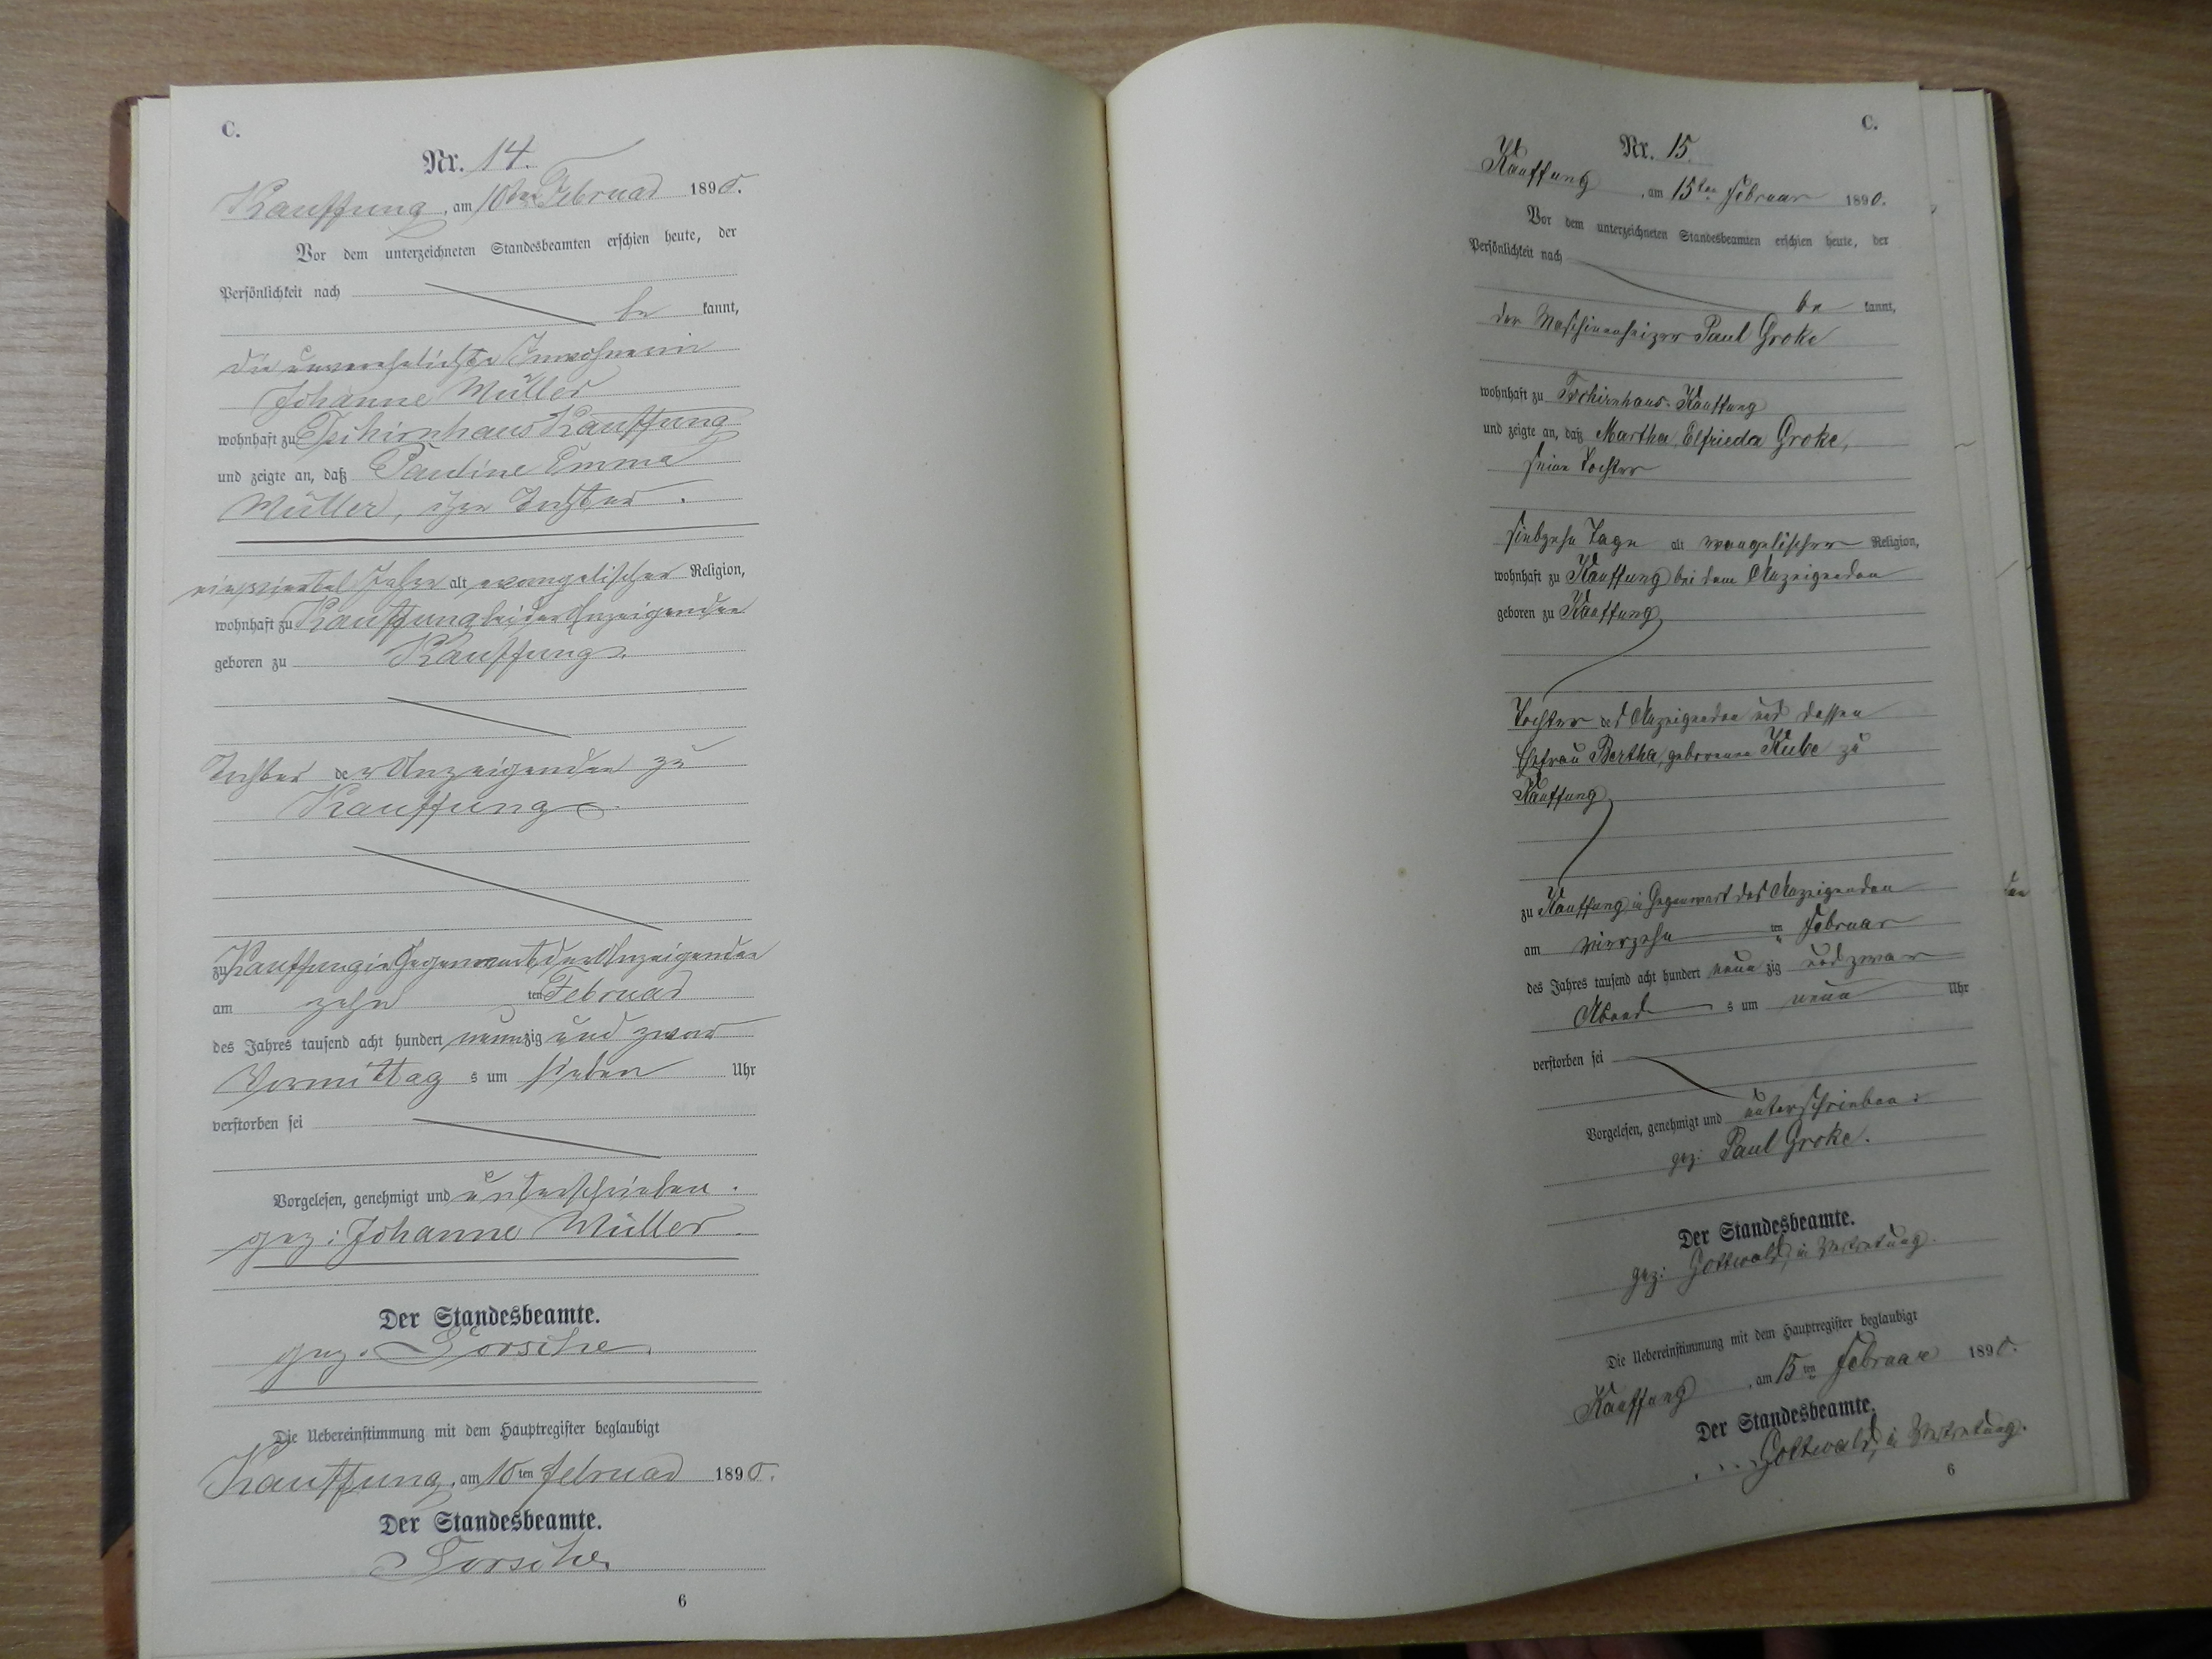 C.
Nr. 14.
Kauffung, am 10ten Februar 1890.
Vor dem unterzeichneten Standesbeamten erschien heute, der
Persönlichkeit nach
be kannt,
die unverehelichte Inwohnerin
Johanne Müller
wohnhaft zu Tschirnhaus Kauffung
und zeigte an, daß Pauline Emma
Müller, ihre Tochter.
einviertel Jahr alt evangelischer Religion,
wohnhaft zu Kauffung bei der Anzeigenden
geboren zu Kauffung.
Tochter der Anzeigenden zu
Kauffung
zu Kauffung in Gegenwart der Anzeigenden
am zehn ten Februar
des Jahres tausend acht hundert neunzig und zwar
Vormittag s um sieben Uhr
verstorben sei
Vorgelesen, genehmigt und unterschrieben.
gez: Johanne Müller.
Der Standesbeamte.
gez.
Die Uebereinstimmung mit dem Hauptregister beglaubigt
Kauffung, am 10ten Februar 1890.
Der Standesbeamte.
6
C.
Nr. 15.
Kauffung, am 15ten Februar 1890.
Vor dem unterzeichneten Standesbeamten erschien heute, der
Persönlichkeit nach
be kannt,
der Maschinenheizer Paul Groke
wohnhaft zu Tschirnhaus-Kauffung
und zeigte an, daß Martha Elfrieda Groke,
seine Tochter
siebzehn Tage alt evangelischer Religion,
wohnhaft zu Kauffung bei dem Anzeigenden
geboren zu Kauffung
Tochter des Anzeigenden und dessen
Ehefrau Bertha, geborenen Kube zu
Kauffung
zu Kauffung in Gegenwart des Anzeigenden
am vierzehn ten Februar
des Jahres tausend acht hundert neun zig und zwar
Abend s um neun Uhr
verstorben sei
Vorgelesen, genehmigt und unterschrieben:
gez: Paul Groke.
Der Standesbeamte.
gez: Gottwald, in Vertretung.
Die Uebereinstimmung mit dem Hauptregister beglaubigt
Kauffung, am 15ten Februar 1890.
Der Standesbeamte.
Gottwald, in Vertretung.
6